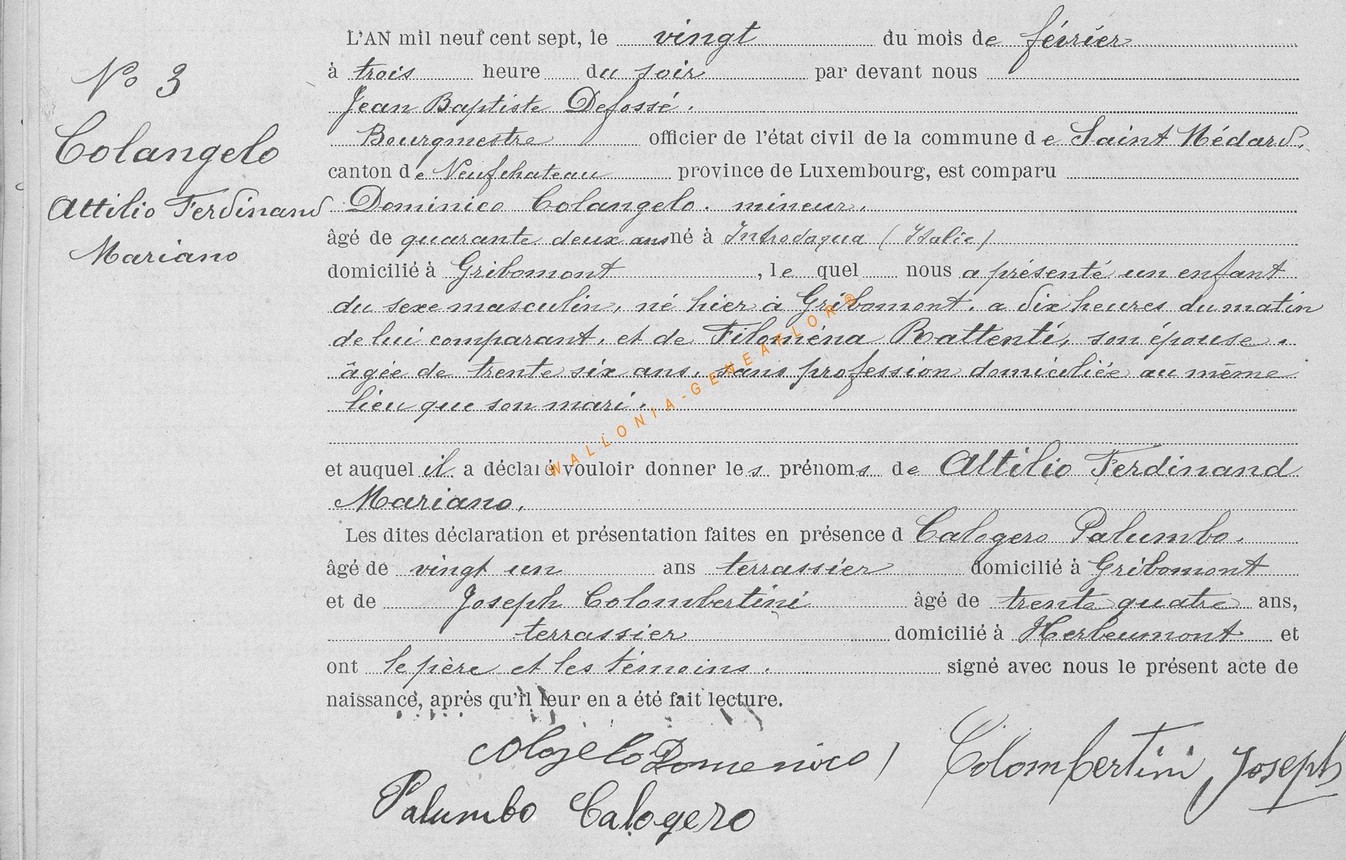 No 3
Colangelo
Attilio Ferdinand
Mariano
L'AN mil neuf cent sept, le vingt du mois de février
à trois heure du soir par devant nous
Jean Baptiste Defossé.
Bourgmestre officier de l'état civil de la commune de Saint Médard.
canton de Neufchateau province de Luxembourg, est comparu
Dominico Colangelo. mineur.
âgé de quarante deux ans né à Introdaqua (Italie)
domicilié à Gribomont, le quel nous a présenté un enfant
du sexe masculin, né hier à Gribomont, a dix heures du matin
de lui comparant, et de Filoména Rattenti, son épouse.
âgée de trente six ans, sans profession domiciliée au même
lieu que son mari.
et auquel il a déclaré vouloir donner les prénoms de Attilio Ferdinand
Mariano.
Les dites déclaration et présentation faites en présence d Calogero Palumbo.
âgé de vingt un ans terrassier domicilié à Gribomont
et de Joseph Colombertini âgé de trente quatre ans,
terrassier domicilié à Herbeumont et
ont le père et les témoins. signé avec nous le présent acte de
naissance, après qu'il leur en a été fait lecture.
Domenico Colombertini Joseph
Palumbo Calogero
WALLONIA-GENEAFLOR®